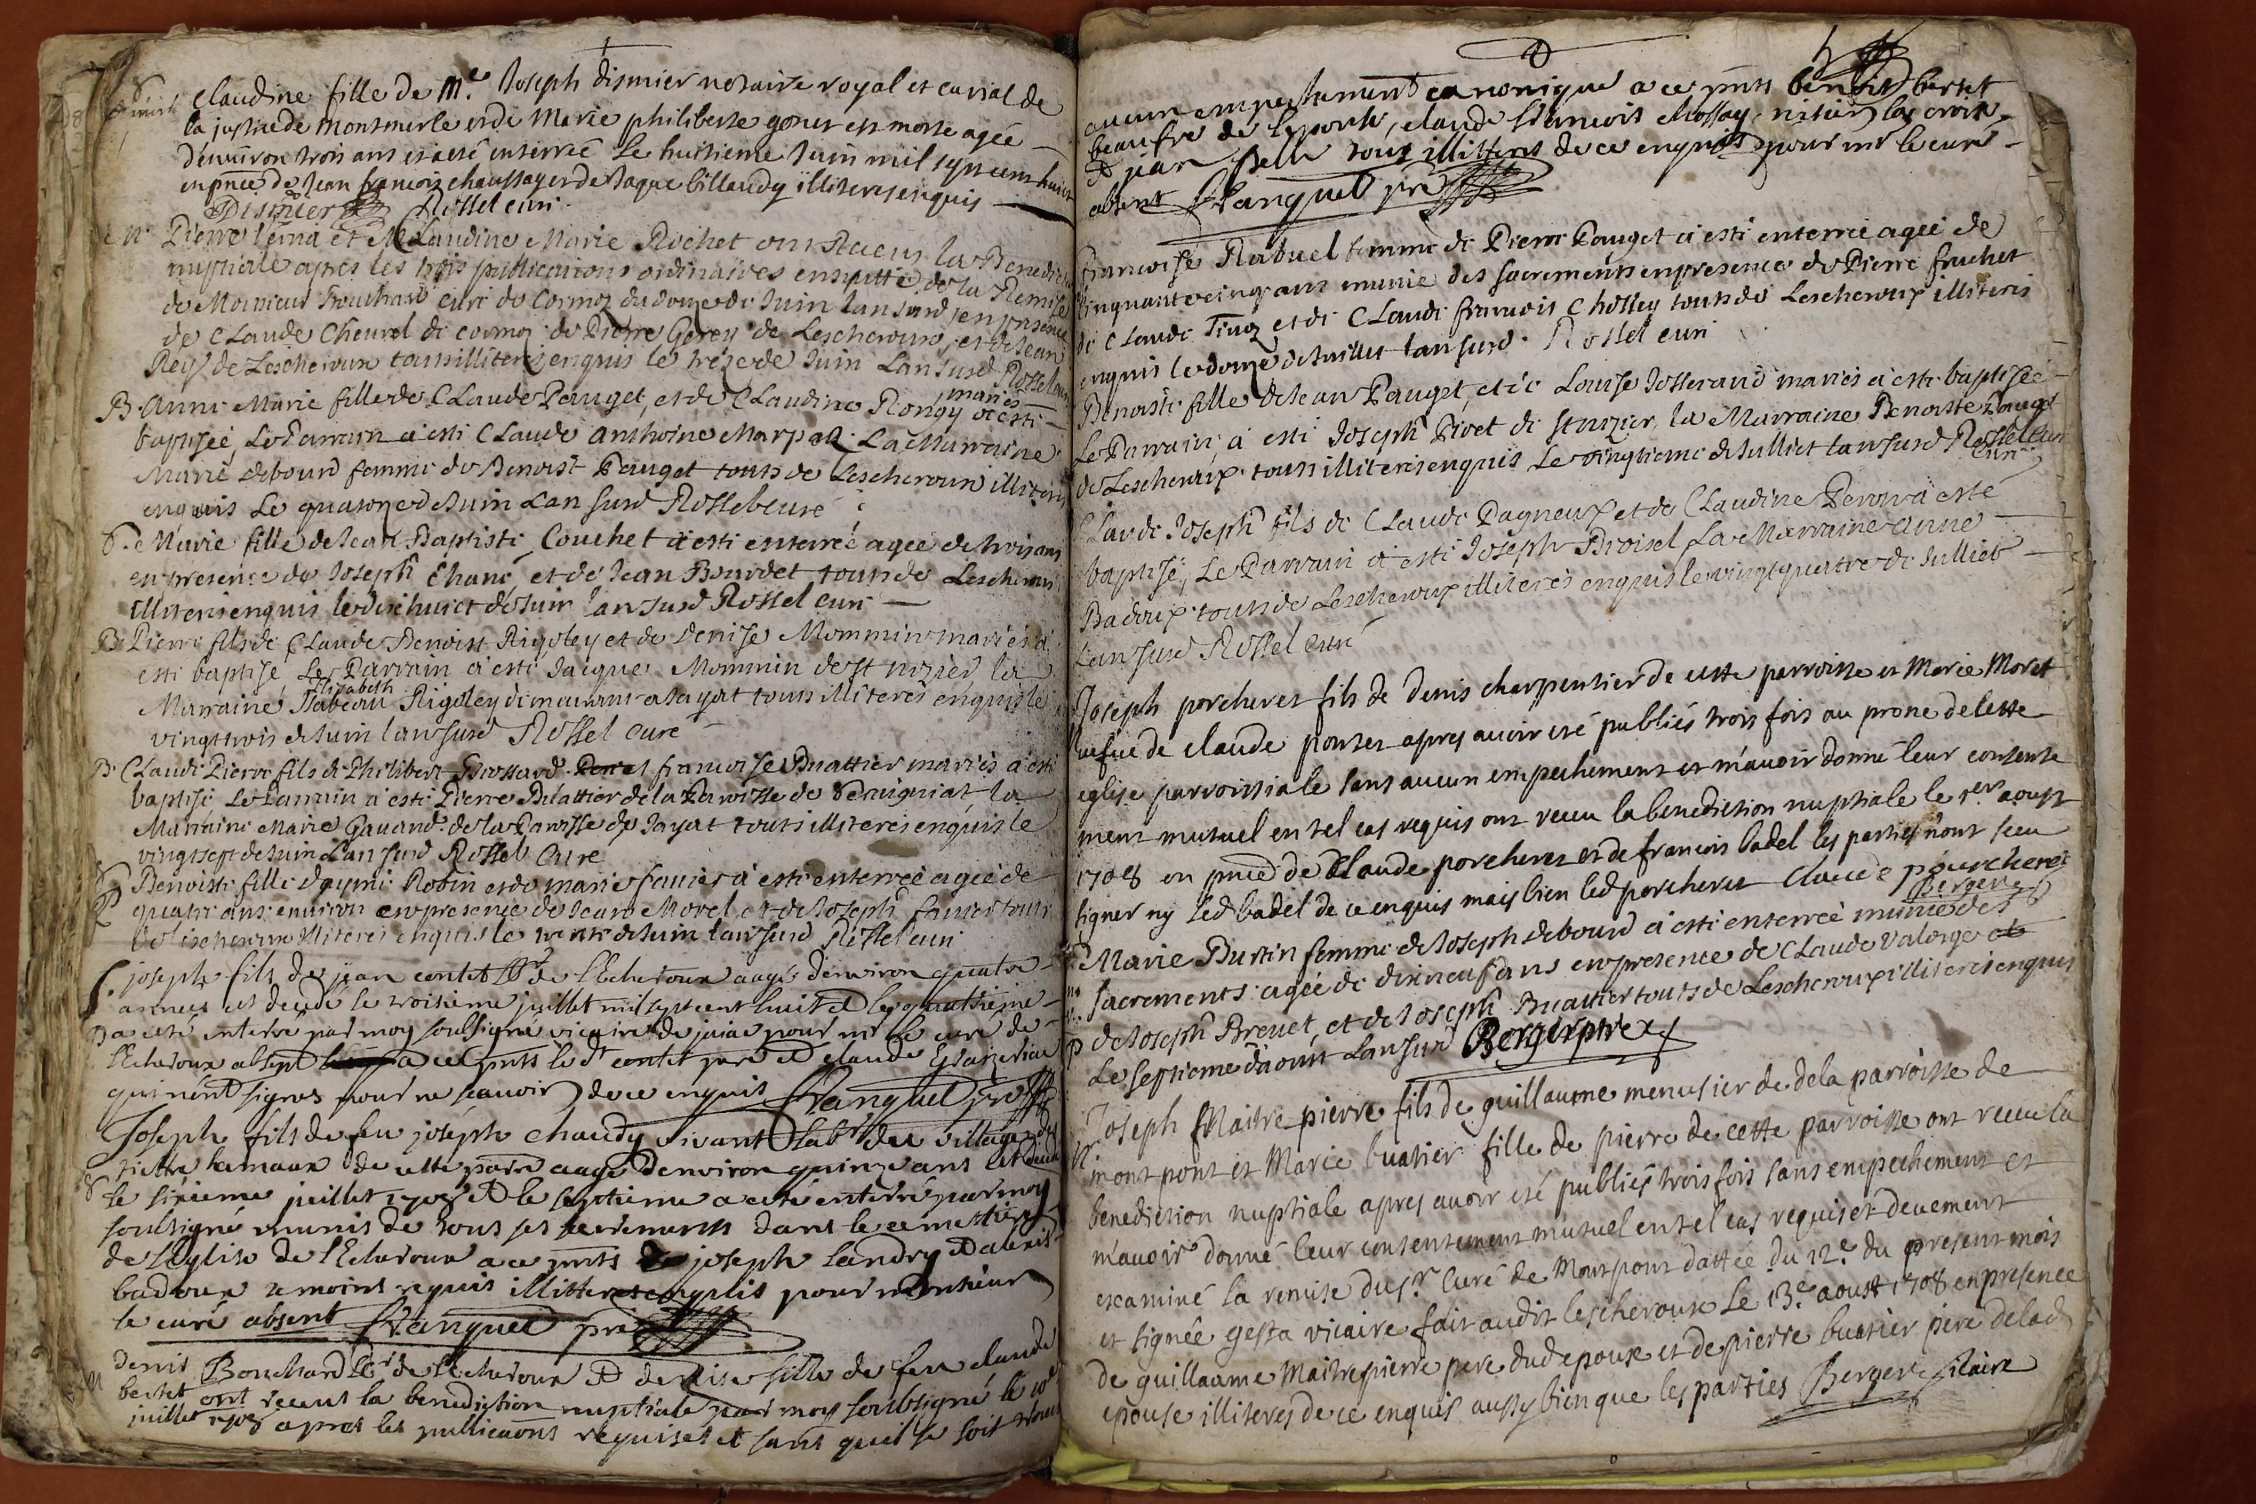 claudine fille de Me. Joseph dismier notaire royal et curial de
la justice de montmerle et de Marie philiberte goner est morte agée
d'environ trois ans et a esté enterreé le huitieme juin mil sept cent huict
en pnce de Jean françois chaussay et de Jaque billaudy illiteres enquis
Dismier Rossel curé
Pierre et Claudine Marie Rochet ont Receus la Benedict
nuptiale apres les trois publications ordinaires ensuitte de la Remise
de Monsieur Trouchard curé de Cormoz du douze de Juin lan susd en presence
de CLaude Cheurel de cormoz de Pierre Gerey de Lescheroux et de Jean
Rey de Lescheroux tous illiteres enquis le treze de Juin Lan susd Rossel curé
B. Anne Marie fille de CLaude Pauget, et de CLaudine Rongy mariés a esté
baptiseé, Le Parrain a esté CLaude Anthoine Marpaz La Marraine
Marie debourd femme de Benoist Pauget touts de Lescheroux illiteres
enquis Le quatorze de Juin Lan susd Rossel Curé
S. Marie fille de Jean Baptiste Couchet a esté enterreé agee de trois ans
en presence de Joseph Chane, et de Jean Bourdet touts de Lescheroux
illiteres enquis le dixhuict de Juin lan susd Rossel curé
B. Pierre fils de CLaude Benoist Rigoley et de Denise Mommin mariés a
esté baptisé, Le Parrain a esté Jacque Mommin de st nizier la
Elizabeth
Marraine Isabeau Rigoley demeurant a Jayat touts illiteres enquis le
vingt trois de Juin lan susd Rossel Curé
B. CLaude Pierre fils de Philibert Brossard et francoise Buattier mariés a esté
baptisé Le Parrain a esté Pierre Buattier de la Parroisse de la
Marraine Marie Gavand de la Parroisse de Jayat touts illiteres enquis le
vingt sept de Juin Lan susd Rossel Curé
Benoiste fille daymé Robin et de marie favier a esté enterreé ageé de
quatre ans environ en presence de Jean Morel et de Joseph favier touts
de Lescheroux illiteres enquis le trente de Juin lan susd Rossel curé
S. joseph fils de jean contet lbr de lEcheroux aagé denviron quatre
années est decedé le troisieme juillet mil sept cent huit et le quatrieme
a esté enterré par moy soubsigné vicaire de jaia pour mr le curé de
lEcheroux absent a ce pnts led contet pere et claude
qui n'ont signes pour ne scauoir de ce enquis Stanquet pre
Joseph fils de feu joseph chaudy vivant labr du village de
hamaux de cette parr aagé denviron quinze ans est decedé
le sixieme juillet 1708 et le septieme a esté enterré par moy
soubsigné munis de tous ses sacrements dans le cemetiere
de lEglise de lEcheroux a ce pnts joseph landry et alexis
badoux temoins requis illitteres enquis pour monsieur
le curé absent Stanquet pre
Denis Bouchard lbr de lEcheroux et denise fille de feu claude
bertet ont receus la benediction nuptiale par moy soubsigné le 10e
juillet 1708 apres les publications requises et sans quil se soit trouué
aucun empechement canonique a ce pnts benoit bertet
beaufre de lepouse, claude francois chossay, nisier la croix
et jean tous illitteres de ce enquis pour mr le curé
absent Stanquet pre
Francoise Rabuel femme de Pierre Pauget a esté enterreé ageé de
cinquante cinq ans munie des sacrements en presence de Pierre fruchet
de CLaude Tinoz et de CLaude francois Chossey touts de Lescheroux illiteres
enquis le douze de Juillet lan susd. Rossel curé
Benoiste fille de Jean Pauget, et de Louise Josserand mariés a esté baptiseé
Le Parrain a esté Joseph Pivet de st nizier, la Marraine Benoiste Pauget
de Lescheroux touts illiteres enquis Le vingtieme de Julliet lan susd Rossel Curé
CLaude Joseph fils de CLaude Pagneux et de CLaudine Peron a esté
baptisé, Le Parrain a esté Joseph Broisel La Marraine Anne
Badoux touts de Lescheroux illiteres enquis le vingt quatre de Julliet
Lan susd Rossel Curé
Joseph porcheret fils de denis charpentier de cette parroisse et Marie Moret
vefue de claude ponset apres auoir eté publiés trois fois au prone de cette
eglise parroissiale sans aucun empechement et m'auoir donné leur consente
ment mutuel en tel cas requis ont receu la benediction nuptiale le 1er aoust
1708 en pnce de Claude porcheret et de francois badel les parties n'ont sceu
signer ny led badel de ce enquis mais bien led porcheret Claude pourcheret
Bergere
Marie Burtin femme de Joseph debourd a esté enterreé munie des
sacrements ageé de dixneuf ans en presence de CLaude Valorge
de Joseph Brevet, et de Joseph Buattier touts de Lescheroux illiteres enquis
Le septieme d'aoust Lan susd Bergere ptre
Joseph Maitre pierre fils de guillaume menusier de dela parroisse de
mont pont et Marie buatier fille de pierre de cette parroisse ont receu la
benediction nuptiale apres auoir eté publiés trois fois sans empechement et
m'auoir donné leur consentement mutuel en tel cas requis et deuement
examiné la remise du sr. Curé de Montpont dattée du 12e. du present mois
et signée gesta vicaire fait audit lescheroux Le 13e. aoust 1708 en presence
de guillaume Maitrepierre pere dud epoux et de pierre buatier pere de lad
epouse illiteres de ce enquis aussy bien que les parties Bergere vicaire